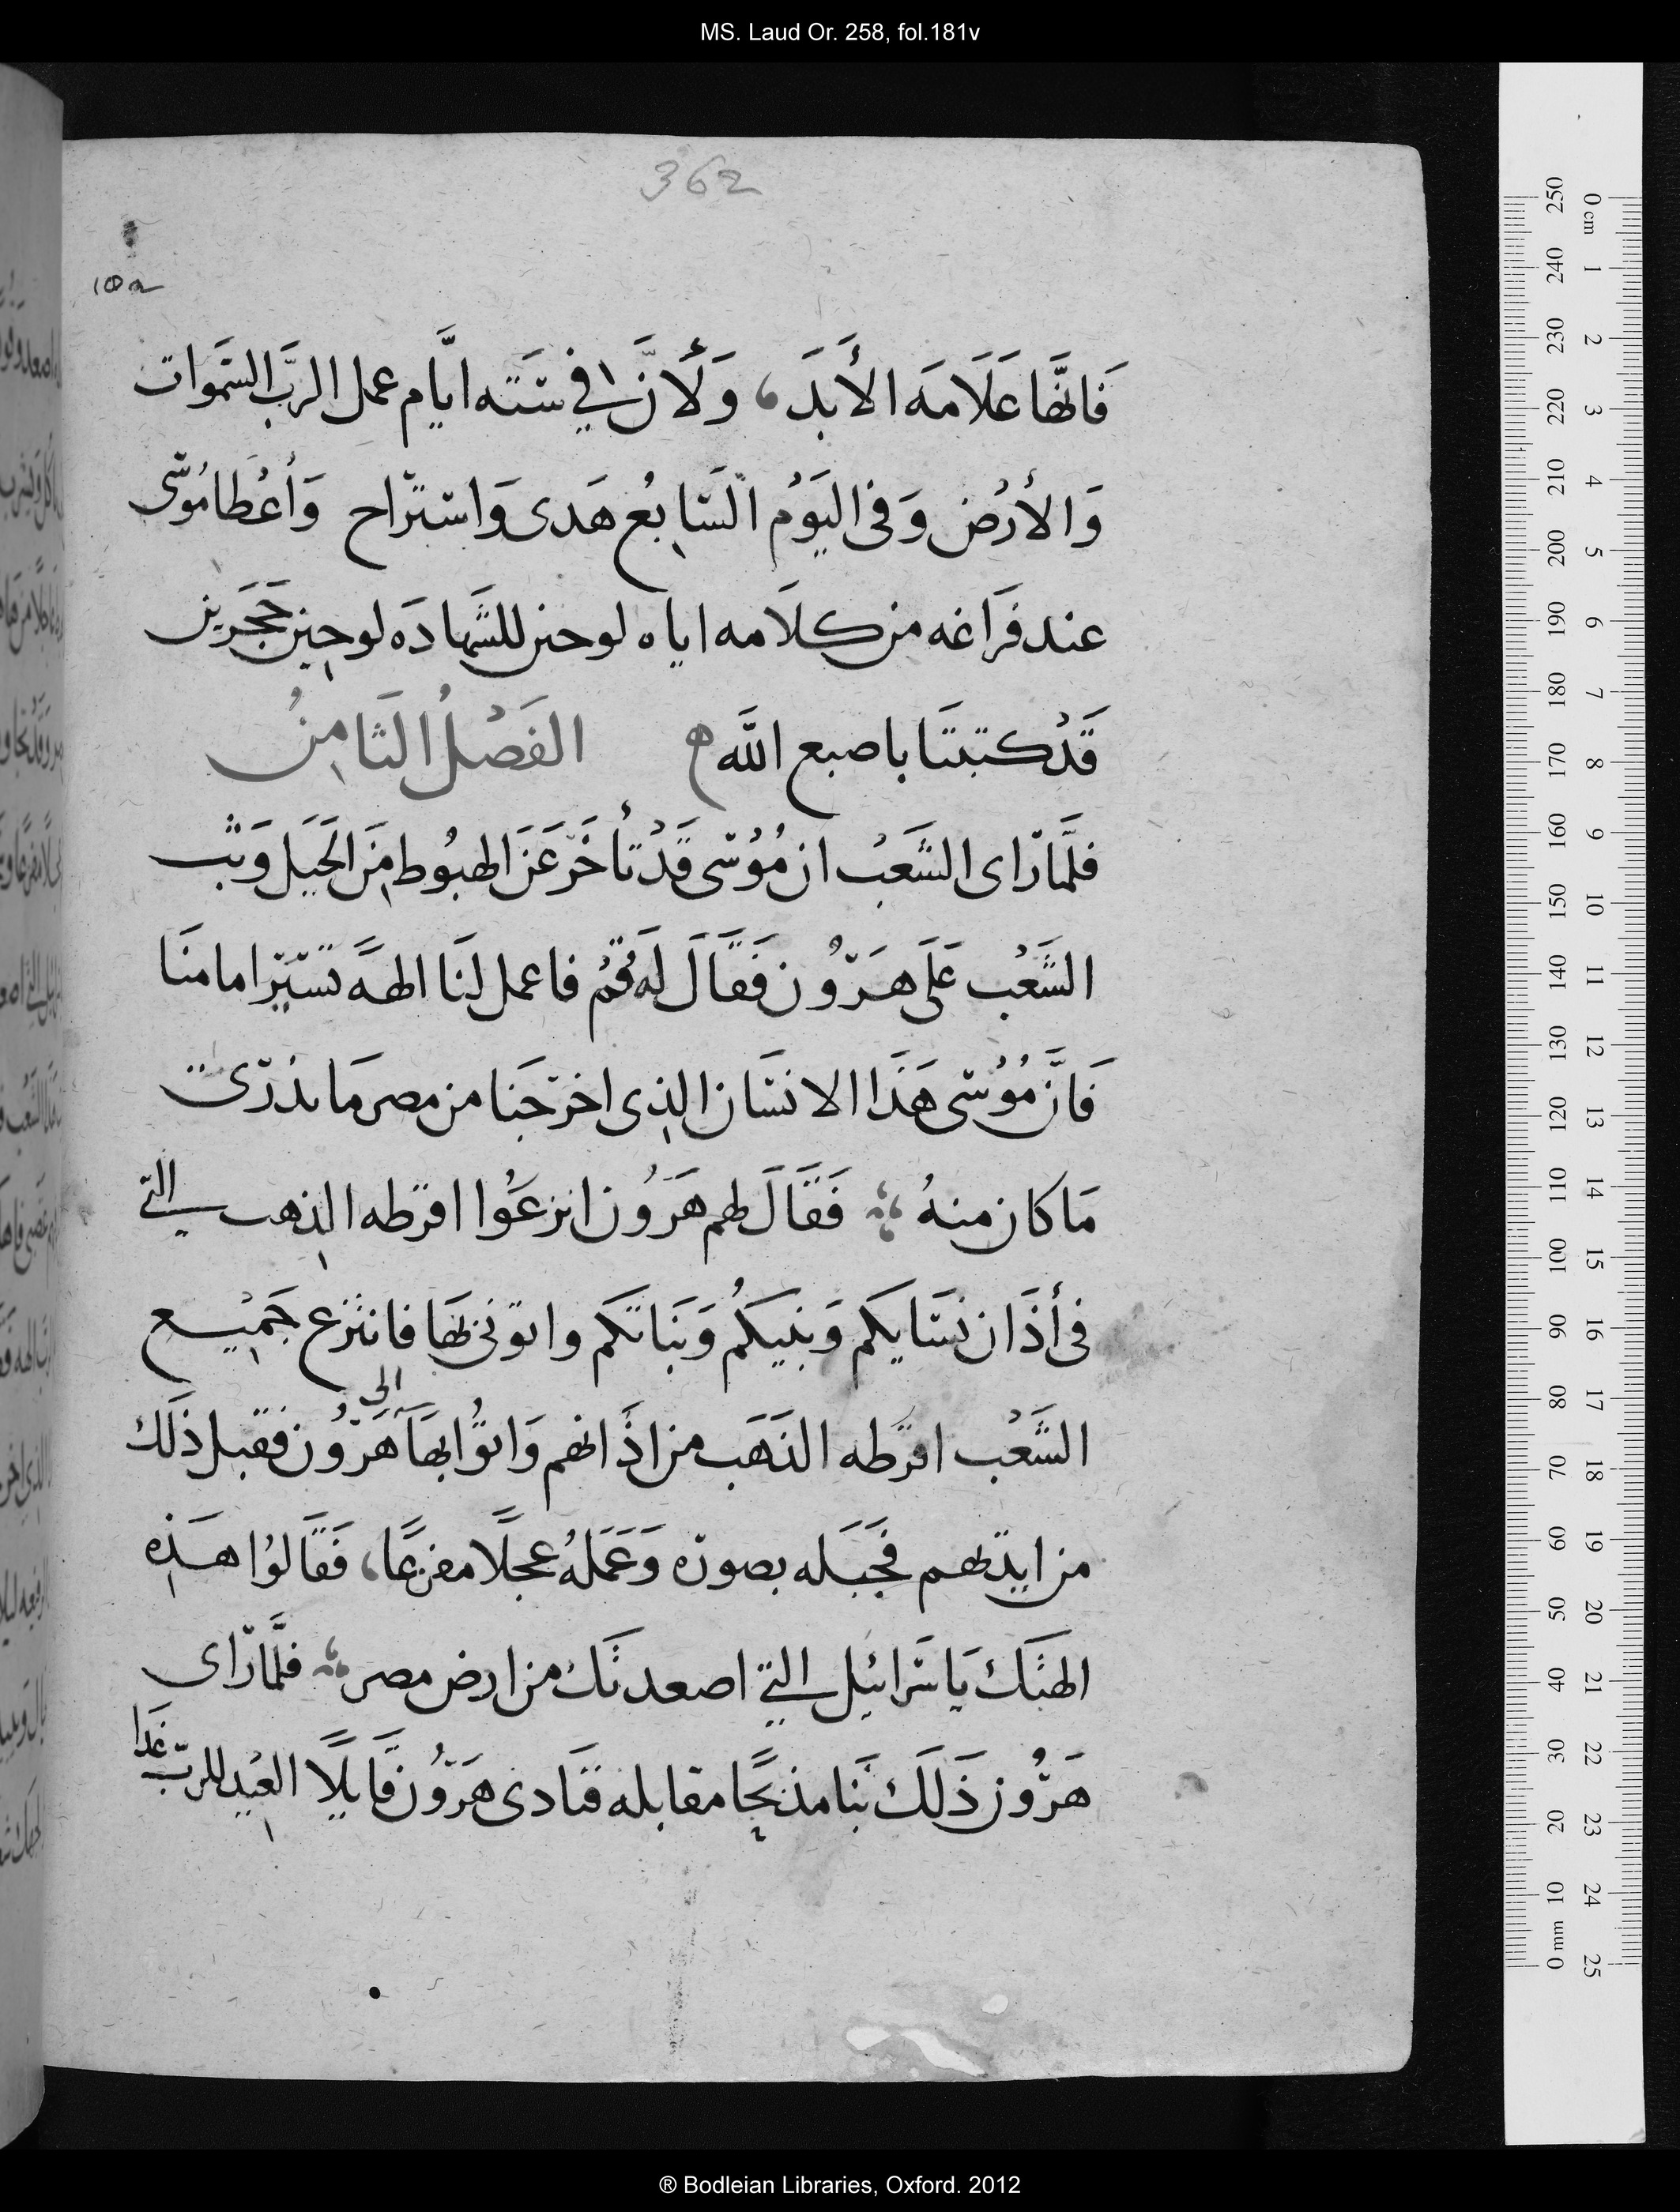 MS. Laud Or. 258, fol.181v
362
فَانهَّا عَلَامَه الأَبدَ، وَلأَنَّ في ستَته ايَّام عمل الربَّ السَّموَات
وَالأرْض وَفى اليَوْم السَّابعُ هَدى وَاستَراح وَأعْطا مُوسَى
عند فرَاغه من كلَامه اياه لوحين للشَّهادَه لوحين حَجَرين
قَدْ كتبتَا باصبع الله ه الفَصْلُ الثَامنُ
فلَّما رَاى الشَّعَبْ ان مُوْسى قَدْ تأخَّر عَن الهبُوط مِنَ الجَبَل وَثب
الشَّعْب عَلَى هَرُون فَقَالَ لَه قُمْ فاعمل لنَا الهَه تَسيَر امامنَا
فَانَّ مُوْسى هَذَا الانسَان الذى اخرَجنَا من مصر مَا ندرى
مَا كان منهُ فَقَالَ لهم هَرُون انزعَوُا اقرطه الذهب التى
فى أذَان نسَايكم وَبنيكُم وَبنَاتكم واتونى بهَا فانتزع جَميْع
الشَّعْب اقرطه الذَهَب من اذَانهم وَاتوُا بهَا الى هَرُون فقبل ذَلك
من ايديهم فجَبَله بصورَه وَعَمَلهُ عجلًا مفرعًا، فَقَالوُا هَذه
الهتَك يَا سَرائيل التى اصعدتَك من ارض مصر فلَّما رَاى
هَرُون ذَلَك بنَا مذبحًا مقابله فنَادى هَرُون قَايلًا العيْد للربّ غدَا
0 cm 1 2 3 4 5 6 7 8 9 10 11 12 13 14 15 16 17 18 19 20 21 22 23 24 25
250 240 230 220 210 200 190 180 170 160 150 140 130 120 110 100 90 80 70 60 50 40 30 20 10 0 mm
® Bodleian Libraries, Oxford. 2012